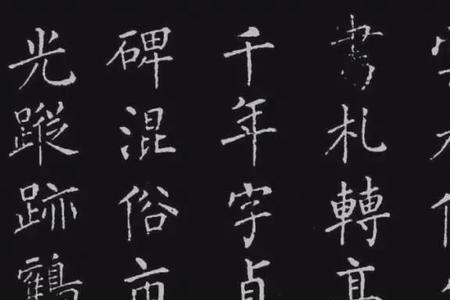 書札轉高
千年字貞
碑混俗市
光蹤跡鶴